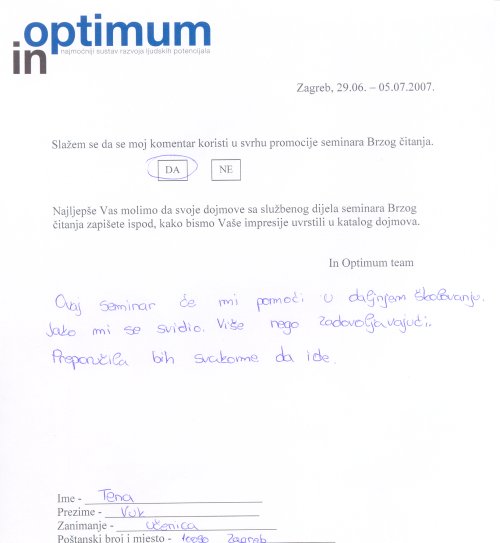 in optimum
najmoćniji sustav razvoja ljudskih potencijala
Zagreb, 29.06. – 05.07.2007.
Slažem se da se moj komentar koristi u svrhu promocije seminara Brzog čitanja.
DA NE
Najljepše Vas molimo da svoje dojmove sa službenog dijela seminara Brzog
čitanja zapišete ispod, kako bismo Vaše impresije uvrstili u katalog dojmova.
In Optimum team
Ovaj seminar će mi pomoći u daljnjem školovanju.
Jako mi se svidio. Više nego zadovoljavajući.
Preporučila bih svakome da ide.
Ime - Tena
Prezime - Vuk
Zanimanje - učenica
Poštanski broj i mjesto - Zagreb